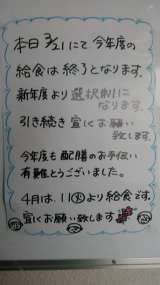 本日3/21にて今年度の
給食は終了となります。
新年度より選択制に
なります。
引き続き宜しくお願い
致します。
今年度も配膳のお手伝い
有難とうございました。
4月は、11(火)より給食です。
宜しくお願い致します